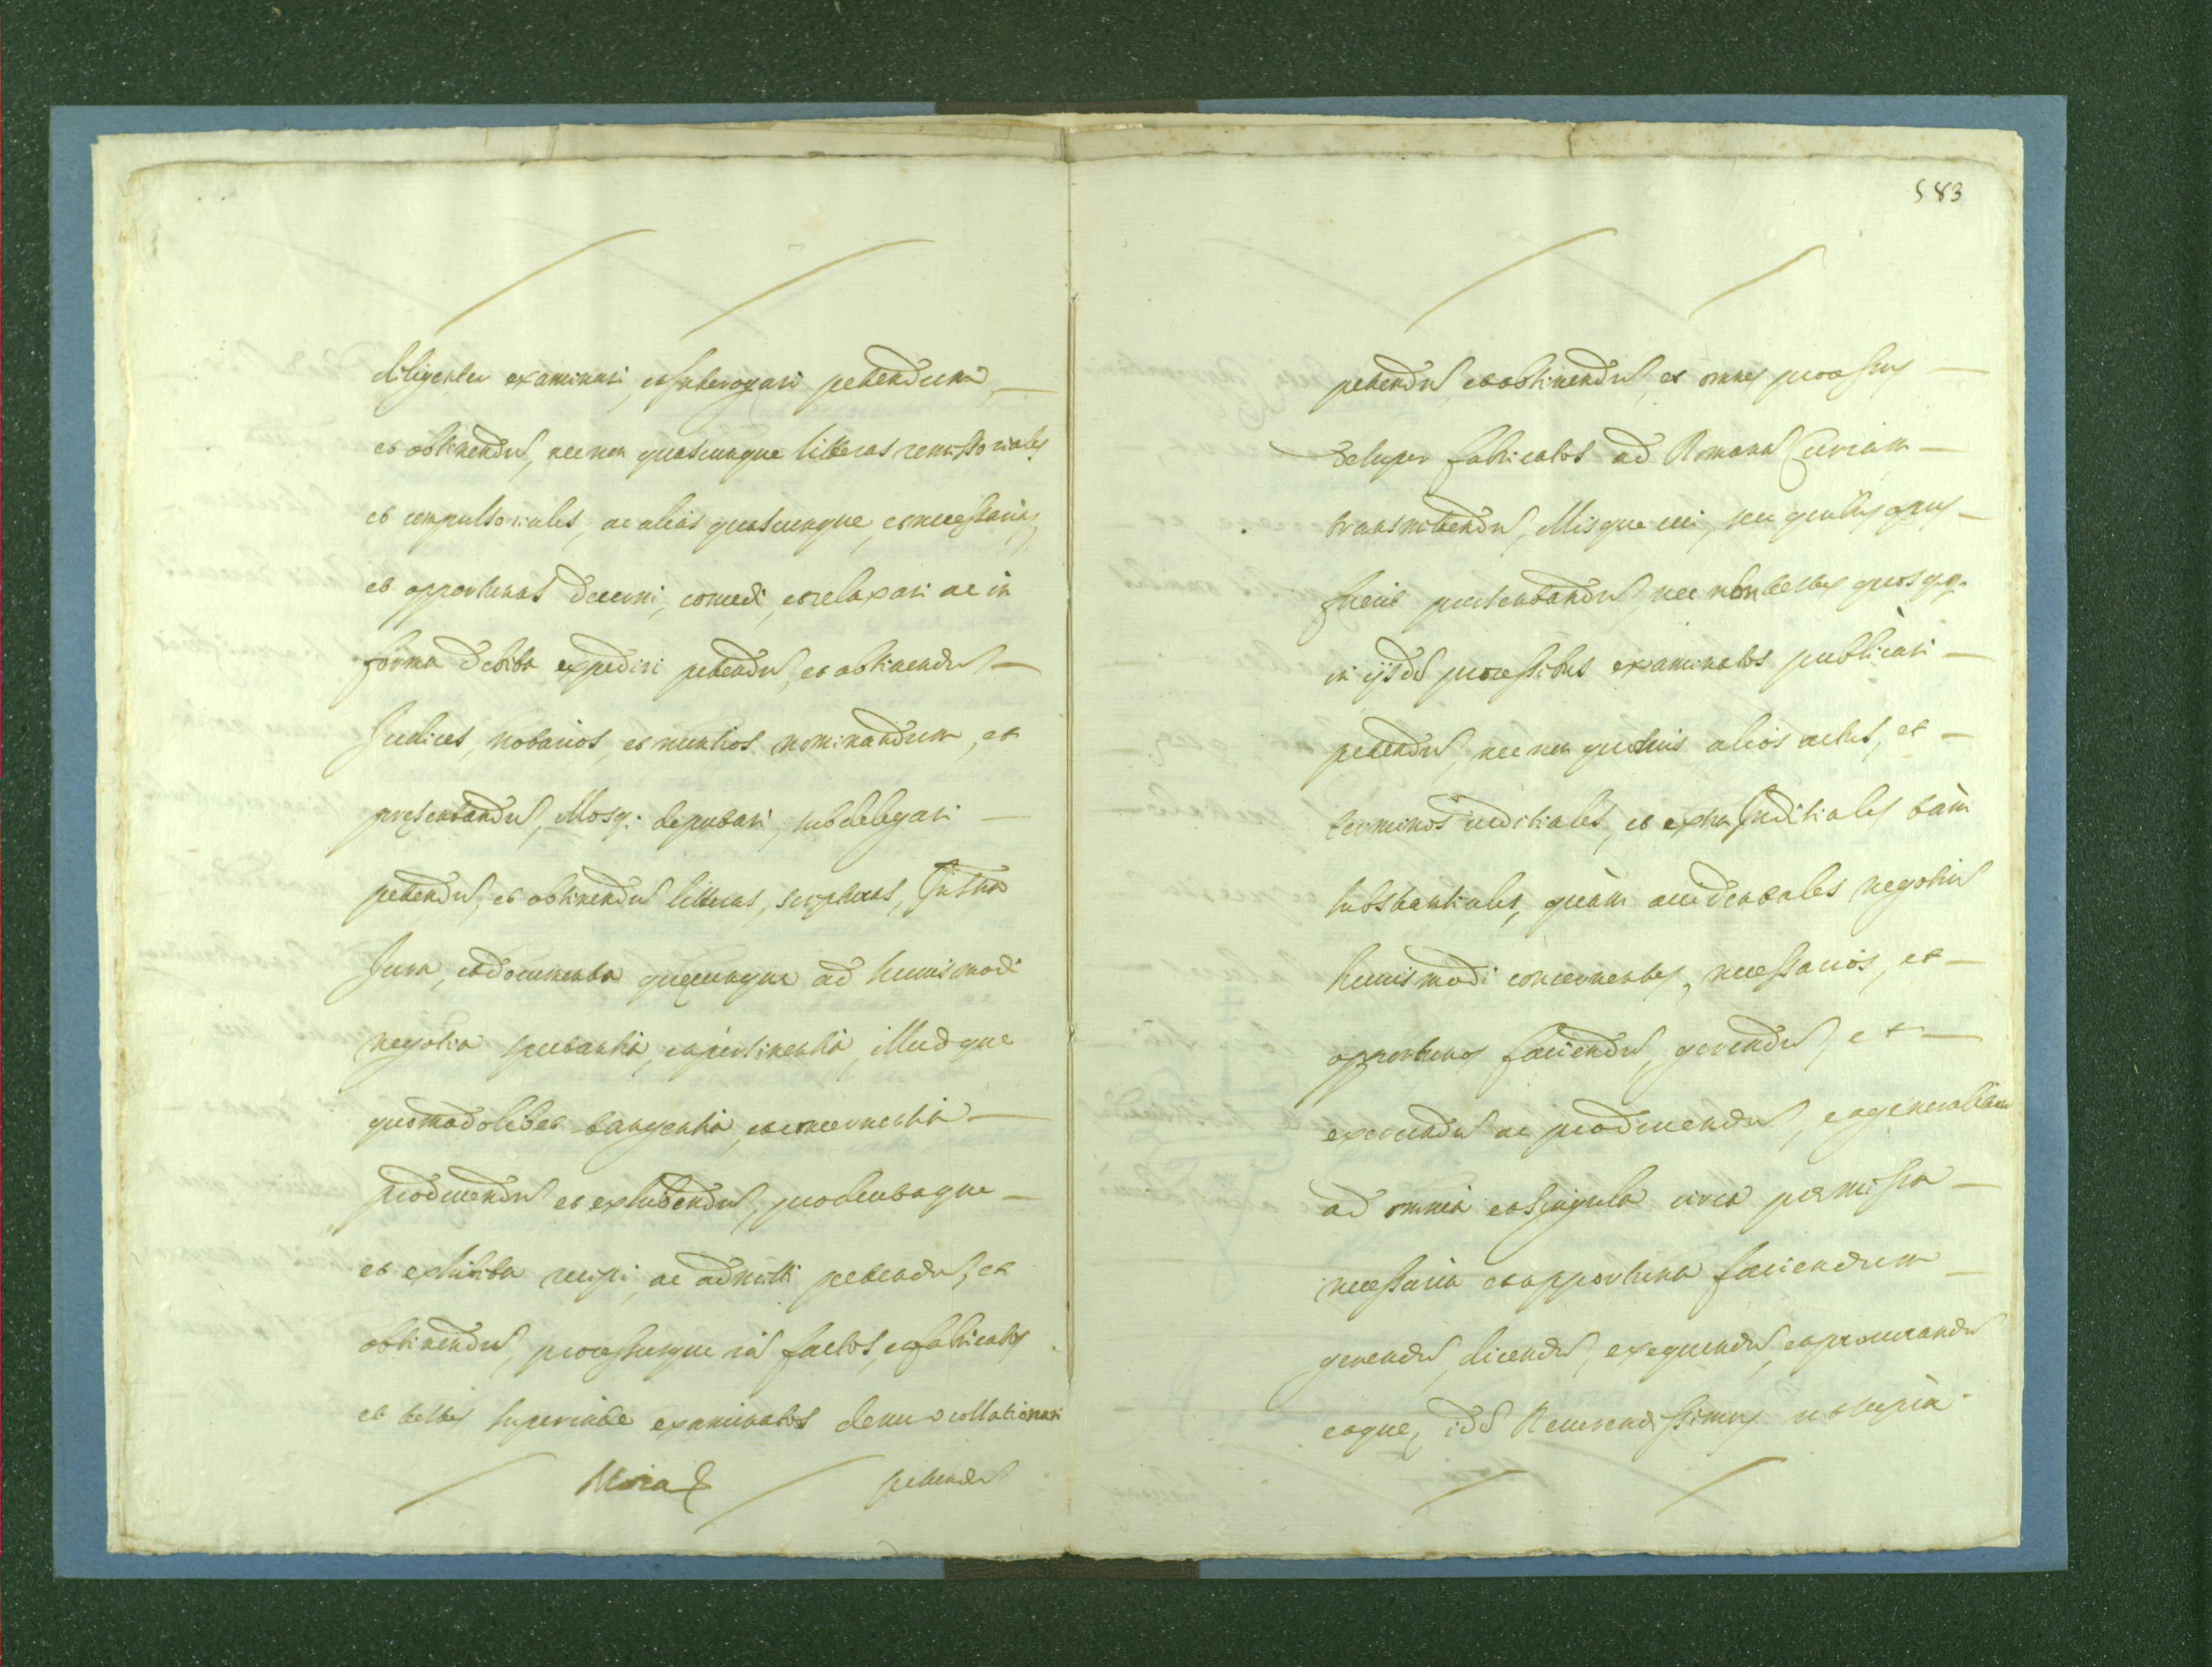 diligenter examinari, et interrogari petendum,
et obtinendũ, nec non quascunque litteras remissoriales
et compulsoriales, ac alias quascunque, et necessarias,
et opportunas decerni, concedi, et relaxari ac in
forma debita expediri petendũ, et obtinendũ
Judices, notarios, et nuntios nominandum, et
presentandũ, illosq; deputari, subdelegari
petendũ, et obtinendũ litteras, scripturas,
Jura, et documenta quęcunque ad huiusmodi
negotia spectantia, et pertinentia, illudque
quomodolibet tangentia, et concernentia
producendũ et exhibendũ, productaque
et exhibita recipi, ac admitti petendũ, et
obtinendũ, processusque factos, et fabricatos
et testes superinde examinatos denuo collationari
petendũ
583
petendũ, et obtinendũ, et omnes processus
desuper fabricatos ad Romanã Curiam
transmittendũ, illisque cui, seu quibus opus
fuerit presentandũ, nec non testes quosqq.
in ijsdẽ processibus examinatos publicari
petendũ, nec non quosuis alios actus, et
terminos iuditiales, et extra Juditiales tàm
substantiales, quàm accidentales negotiũ
huiusmodi concernentes, necessarios, et
opportunos faciendũ, gerendũ, et
exercendũ ac producendũ, et generaliter
ad omnia et singula circa premissa
necessaria et opportuna faciendum
gerendũ, dicendũ, exequendũ, et procurandũ
eaque, idẽ Reuerendissimus